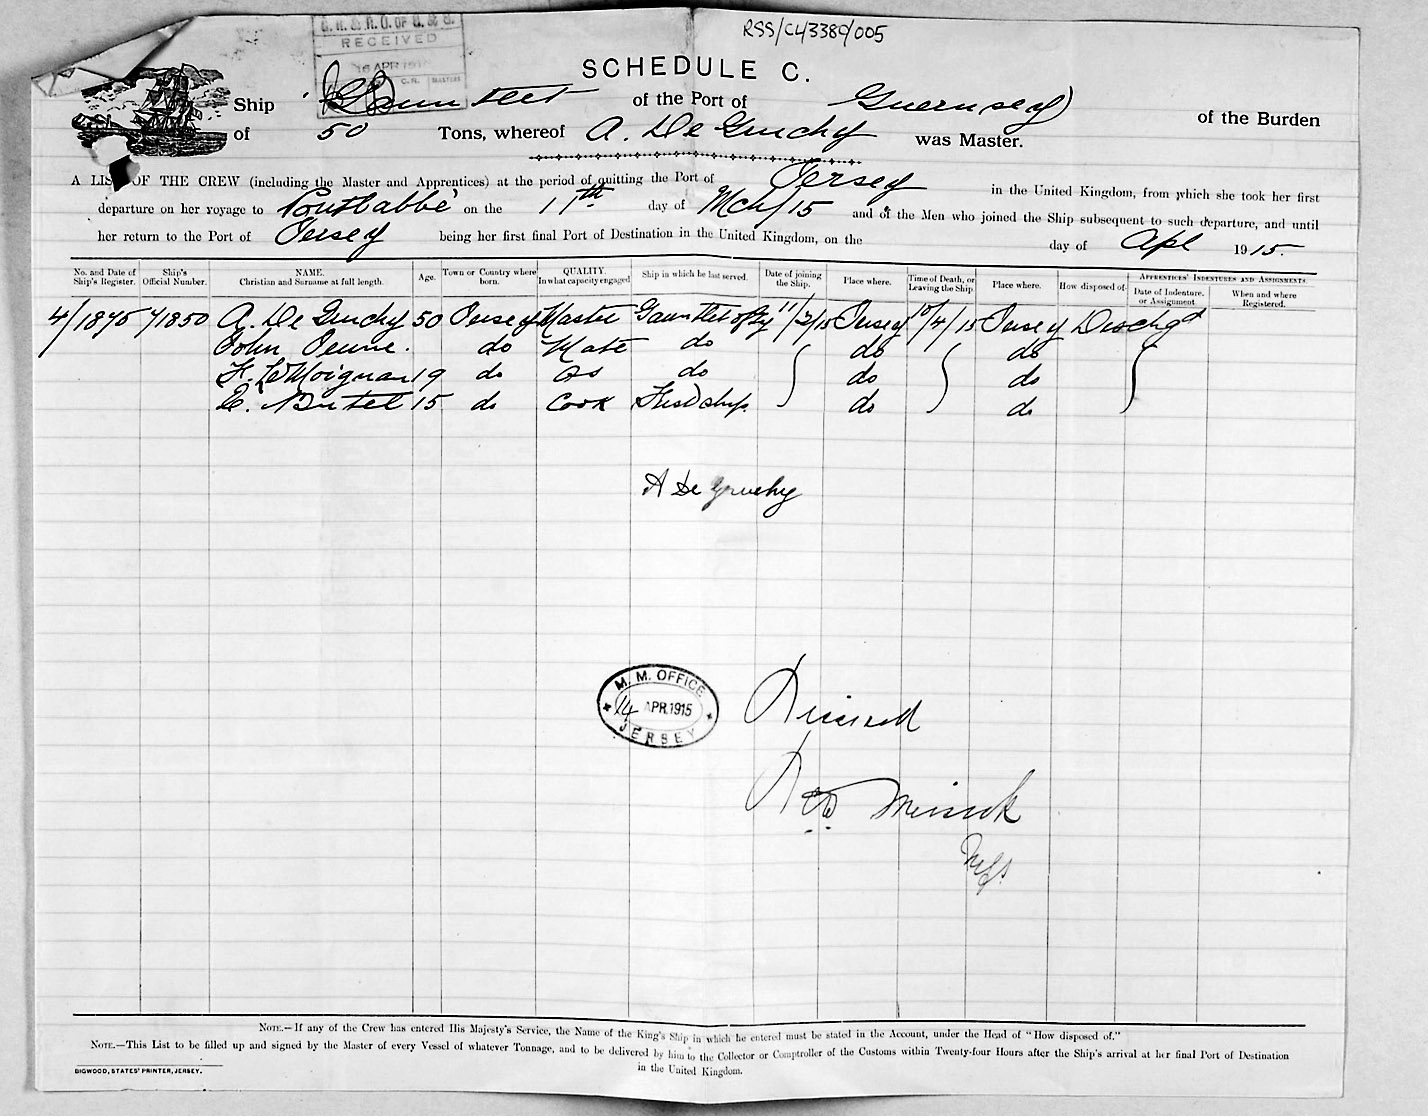 RSS/CL/3380/005
G. R. & R. O. OF S. & S.
RECEIVED
16 APR 191
C.R. MASTERS
SCHEDULE C.
Ship Gauntlet of the Port of Guernsey of the Burden
of 50 Tons, whereof A. De Gruchy was Master.
A LIS OF THE CREW (including the Master and Apprentices) at the period of quitting the Port of Jersey in the United Kingdom, from which she took her first
departure on her voyage to Pontlabbé on the 11th day of Mch/15 and of the Men who joined the Ship subsequent to such departure, and until
her return to the Port of Jersey being her first final Port of Destination in the United Kingdom, on the day of Apl 1915.
No. and Date of Ship's Register. Ship's Official Number. NAME. Christian and Surname at full length. Age. Town or Country where born. QUALITY. In what capacity engaged Ship in which he last served. Date of joining the Ship. Place where. Time of Death, or Leaving the Ship. Place where. How disposed of. APPRENTICES' INDENTURES AND ASSIGNMENTS. Date of Indenture, or Assignment. When and where Registered.
4/1875 71850 A. De Gruchy 50 Jersey Master Gauntlet of Gy 11/3/15 Jersey 10/4/15 Jersey Dischgd
John do Mate do do do
F. Le Moignan 19 do OS do do do
E. 15 do Cook Friendship do do
A De Gruchy
M. M. OFFICE
14 APR. 1915
JERSEY
Received
NOTE.—If any of the Crew has entered His Majesty's Service, the Name of the King's Ship in which he entered must be stated in the Account, under the Head of "How disposed of."
NOTE.—This List to be filled up and signed by the Master of every Vessel of whatever Tonnage, and to be delivered by him to the Collector or Comptroller of the Customs within Twenty-four Hours after the Ship's arrival at her final Port of Destination
in the United Kingdom.
BIGWOOD, STATES' PRINTER, JERSEY.